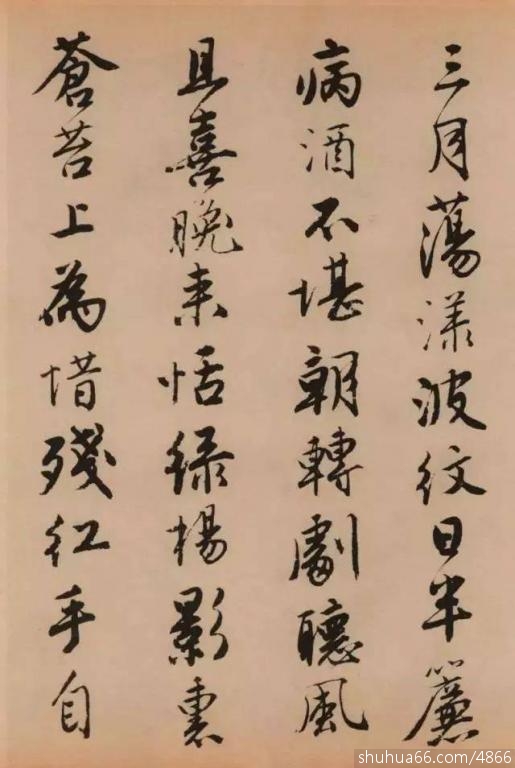 三月蕩漾波紋日半簾
病酒不堪朝轉劇聽風
且喜晚來恬綠楊影裏
蒼苔上為惜殘紅手自
shuhua66.com/4866